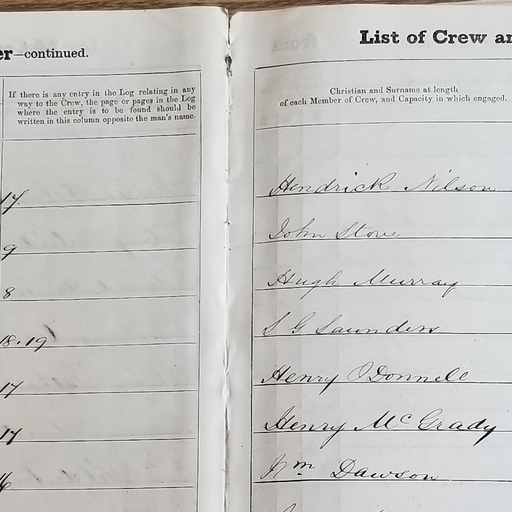 er—continued.
If there is any entry in the Log relating in any
way to the Crew, the page or pages in the Log
where the entry is to be found should be
written in this column opposite the man's name.
17
9
8
18.19
17
17
List of Crew
Christian and Surname at length
of each Member of Crew, and Capacity in which engaged.
Hendrick Nilson
John Stove
Hugh Murray
S G Saunders
Henry O'Donnell
Henry McGrady
Wm Dawson